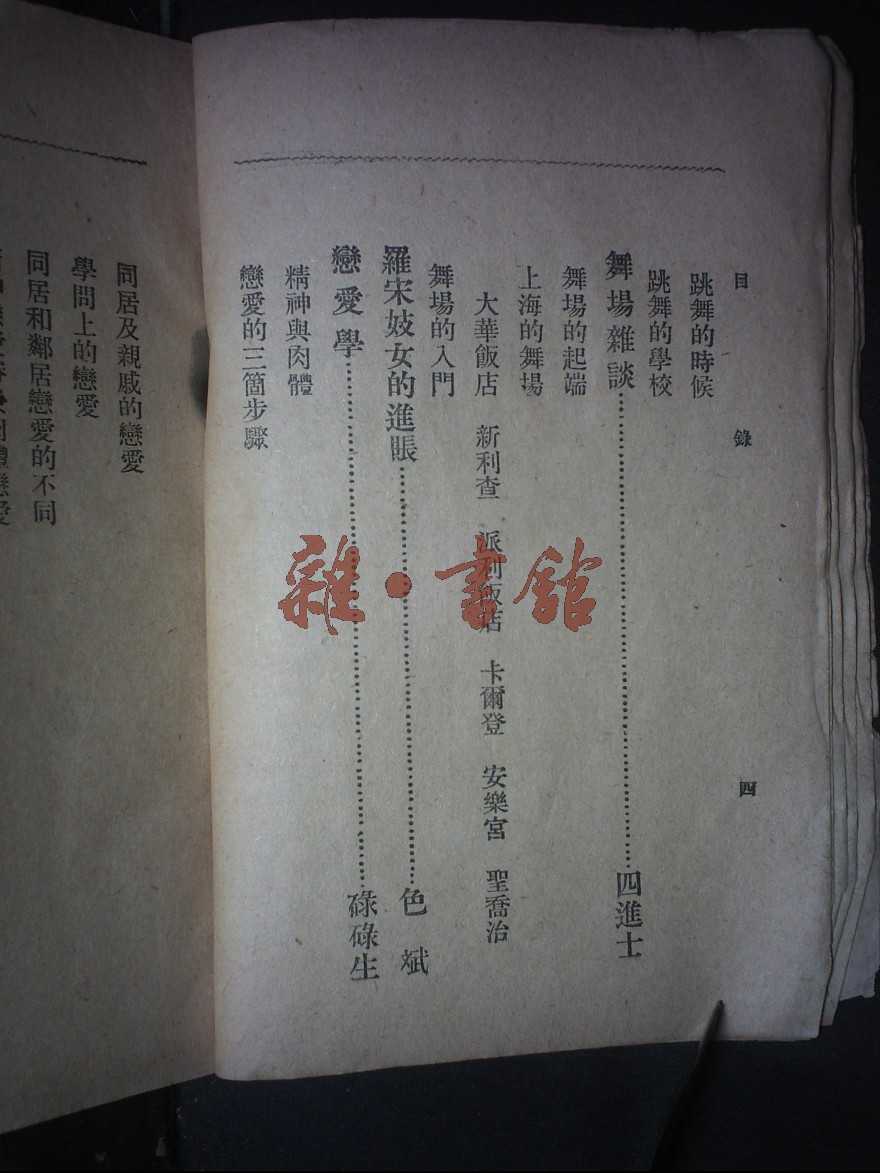 目錄 四
跳舞的時候
跳舞的學校
舞場雜談 四進士
舞場的起端
上海的舞場
大華飯店 新利查 派利飯店 卡爾登 安樂宮 聖喬治
舞場的入門
羅宋妓女的進賬 色斌
戀愛學 碌碌生
精神與肉體
戀愛的三箇步驟
同居及親戚的戀愛
學問上的戀愛
同居和鄰居戀愛的不同
雜·書館